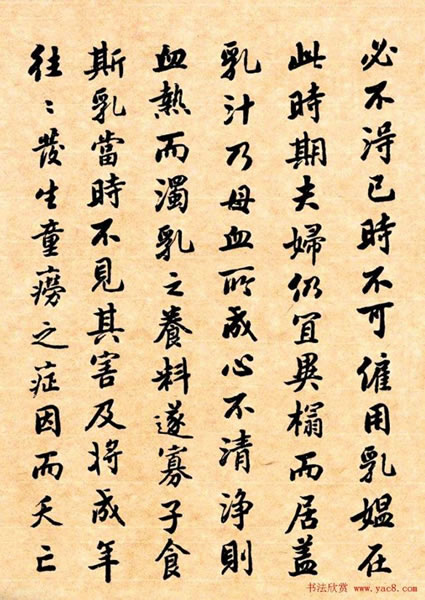 必不得已時不可僱用乳媼在
此時期夫婦仍宜異榻而居蓋
乳汁乃母血所成心不清淨則
血熱而濁乳之養料遂寡子食
斯乳當時不見其害及將成年
往〻發生童癆之症因而夭亡
书法欣赏 www.yac8.com